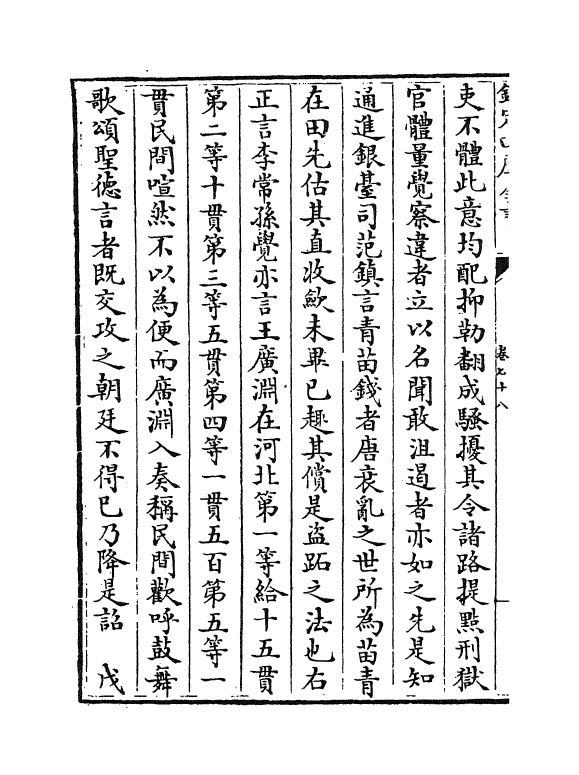 欽定四庫全書
卷七十八
吏不體此意均配抑勒翻成騷擾其令諸路提㸃刑獄
官體量覺察違者立以名聞敢沮遏者亦如之先是知
通進銀臺司范鎮言青苗錢者唐衰亂之世所為苗青
在田先估其直收歛未畢已趣其償是盜跖之法也右
正言李常孫覺亦言王廣淵在河北第一等給十五貫
第二等十貫第三等五貫第四等一貫五百第五等一
貫民間喧然不以為便而廣淵入奏稱民間歡呼鼓舞
歌頌聖徳言者既交攻之朝廷不得已乃降是詔　戊